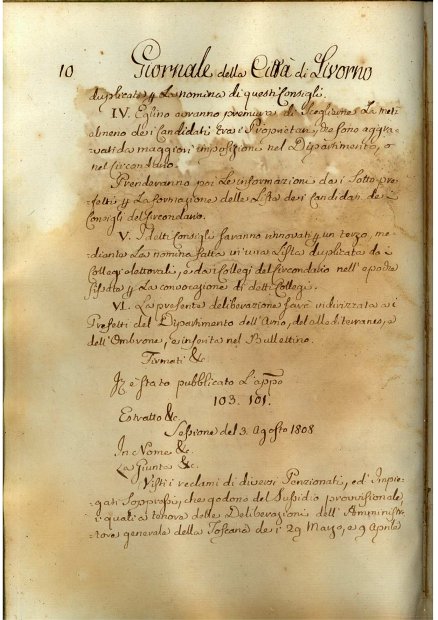 10 Giornale della Città di Livorno
duplicate p La nomina di questi Consigli.
IV. Eglino avranno premura di Scegliere La metà
almeno dei Candidati tra i Proprietari, che sono aggra-
vati da maggiori imposizione nel Dipartimento, o
nel Circondario.
Prenderanno poi Le informazione dai Sotto-Pre-
fetti p La Formazione delle Liste dei Candidati dei
Consigli del Circondario.
V. I detti Consigli saranno rinnovati p un terzo, me-
diante La nomina fatta in una Lista duplicata dai
Collegi elettorali, e dai Collegi del Circondario nell'epoche
fissate p La convocazione di detti Collegi.
VI. La presente deliberazione sarà indirizzata ai
Prefetti del Dipartimento dell'Arno, del Mediterraneo, e
dell'Ombrone, e inserita nel Bullettino.
Firmati &c.
Iz e stato pubblicato L'appo
103. 101.
Estratto &c.
Sessione del 3. Agosto 1808
In Nome &c.
La Giunta &c.
Visti i reclami di diversi Penzionati, ed' Impie-
gati Soppressi, che godono del Sussidio provvisionale,
i quali a tenore delle Deliberazioni dell'Amminist-
tore generale della Toscana dei 29 Marzo, e 9 Aprile